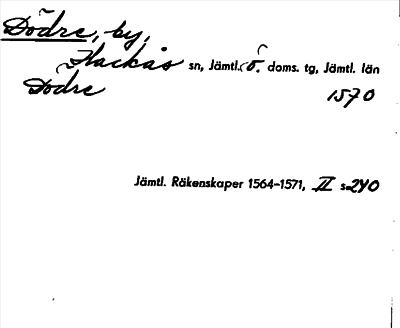 Dödre, by,
Hackås sn, Jämtl. ö. doms. tg, Jämtl. län
Dödre 1570
Jämtl. Räkenskaper 1564-1571, II s. 240